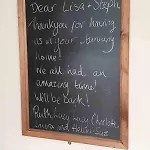 Dear Lisa + Steph
Thankyou for having
us at your stunning
home!
We all had an
amazing time!
Will be back!
Ruth, Lucy, Charlotte
Laura and